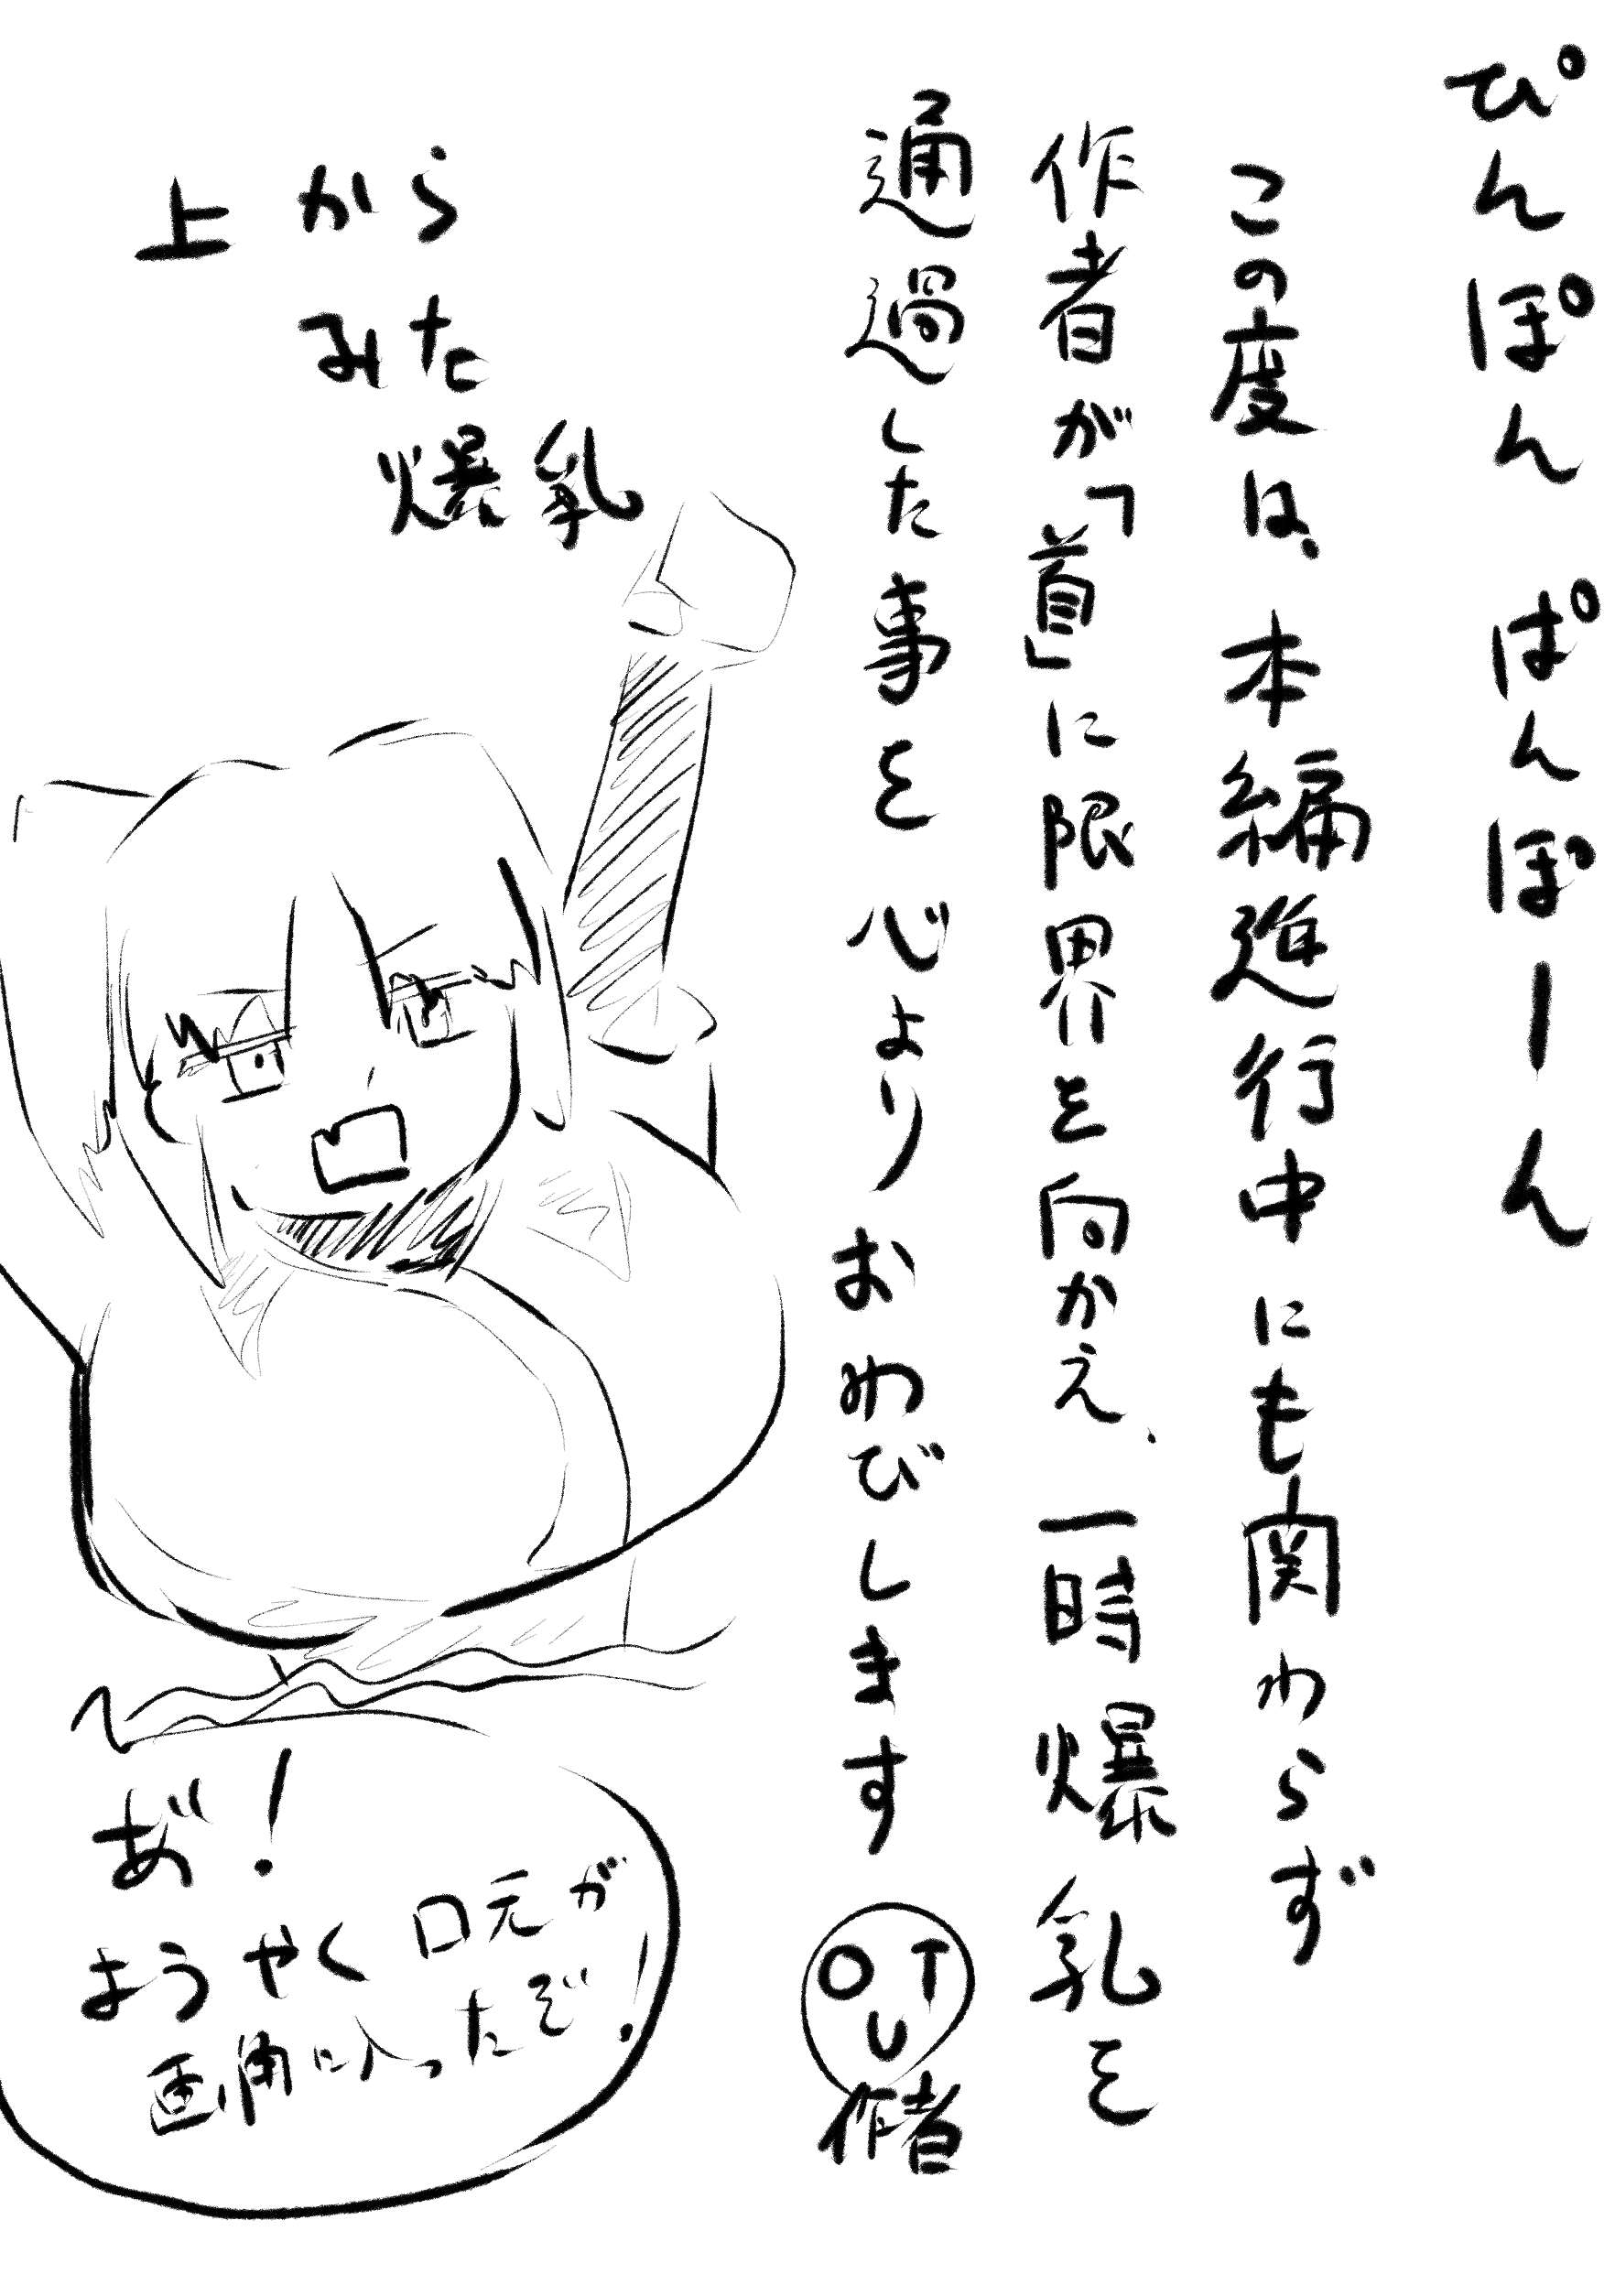 ぴんぽんぱんぽーん
この度は、本編進行中にも関わらず
作者が「首」に限界を向かえ、一時爆乳を
通過した事を心よりおわびします
OUT
作者
上から
みた
爆乳
あ゛!
ようやく口元が
画角に入ったぞ!